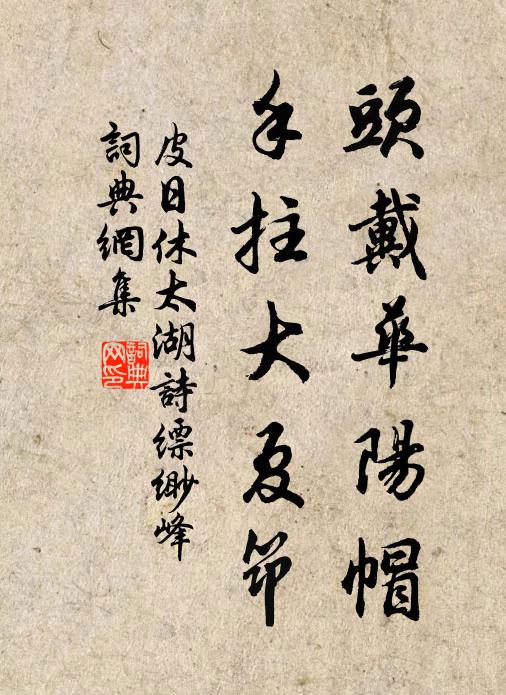 頭戴華陽帽
手拄大夏節
皮日休太湖詩縹緲峰
詞典網集
詞典网印